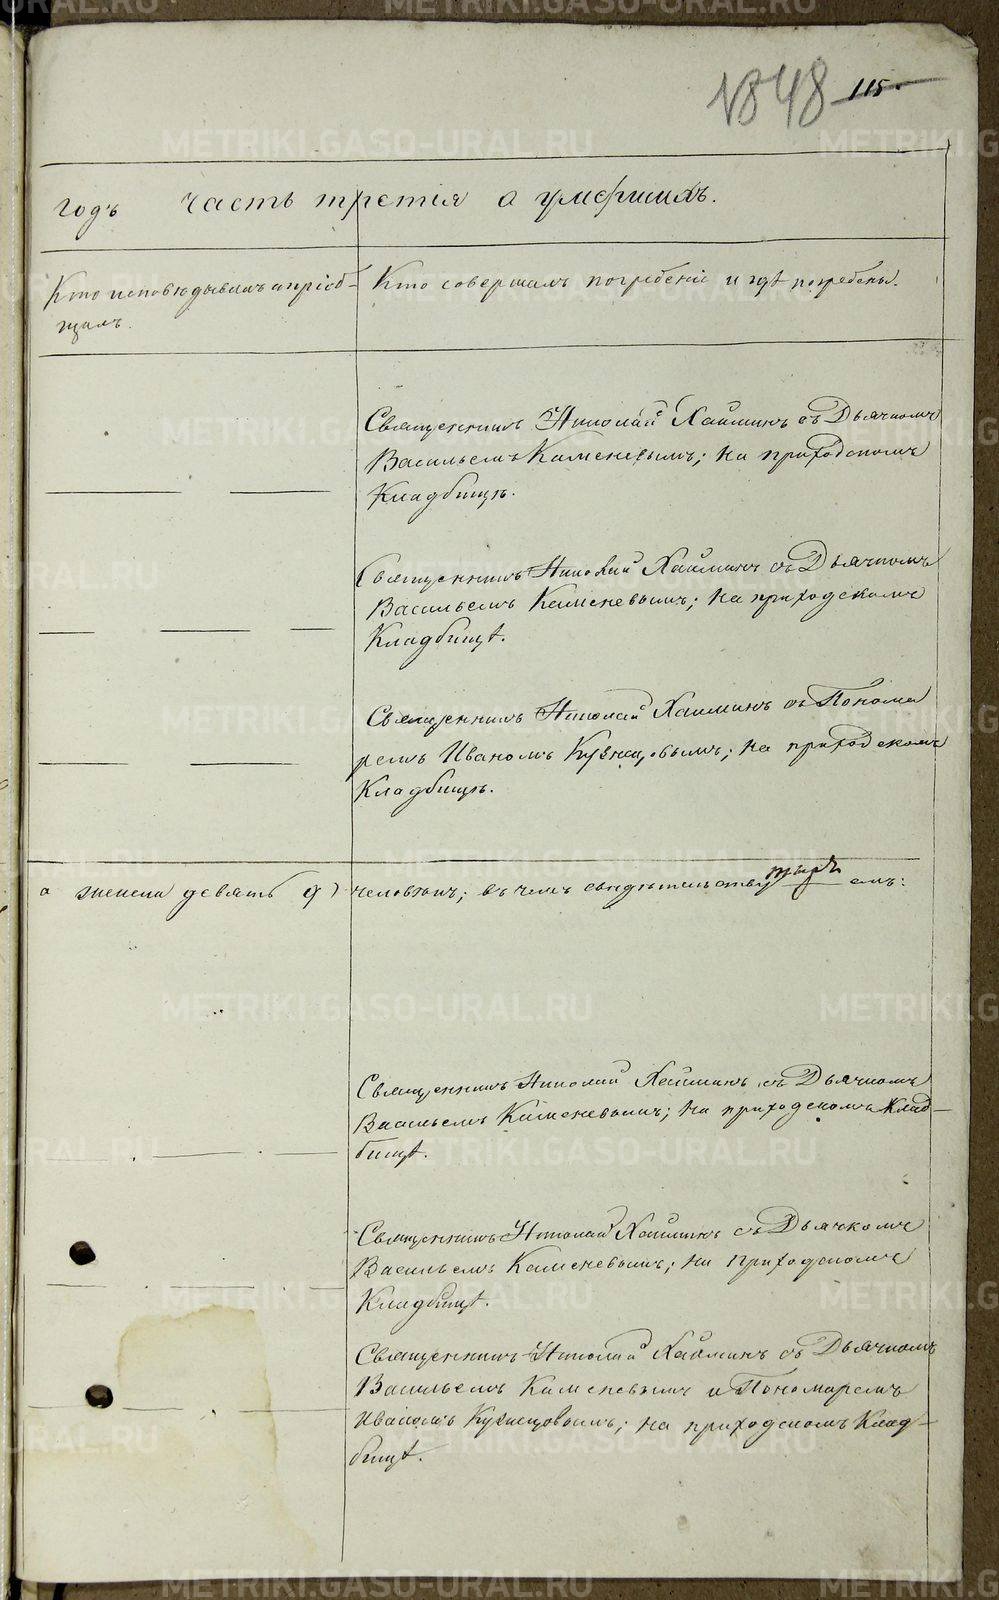 848 115.
годъ часть третія о умершихъ.
Кто исповѣдывалъ и пріоб-
щалъ.
Кто совершалъ погребеніе и гдѣ погребены.
Священникъ Николай Хайминъ съ Дьячкомъ
Васильемъ Каменевымъ; на приходскомъ
Кладбищѣ.
Священникъ Николай Хайминъ съ Дьячкомъ
Васильемъ Каменевымъ; на приходскомъ
Кладбищѣ.
Священникъ Николай Хайминъ съ Понома
ремъ Иваномъ Кузнецовымъ; на приходскомъ
Кладбищѣ.
а женска девять 9) человѣкъ; въ чемъ свидѣтельству емъ:
Священникъ Николай Хайминъ съ Дьячкомъ
Васильемъ Каменевымъ; на приходскомъ Клад-
бищѣ.
Священникъ Николай Хайминъ съ Дьячкомъ
Васильемъ Каменевымъ; на приходскомъ
Кладбищѣ.
Священникъ Николай Хайминъ съ Дьячкомъ
Васильемъ Каменевымъ и Пономаремъ
Иваномъ Кузнецовымъ; на приходскомъ Клад-
бищѣ.
METRIKI.GASO-URAL.RU